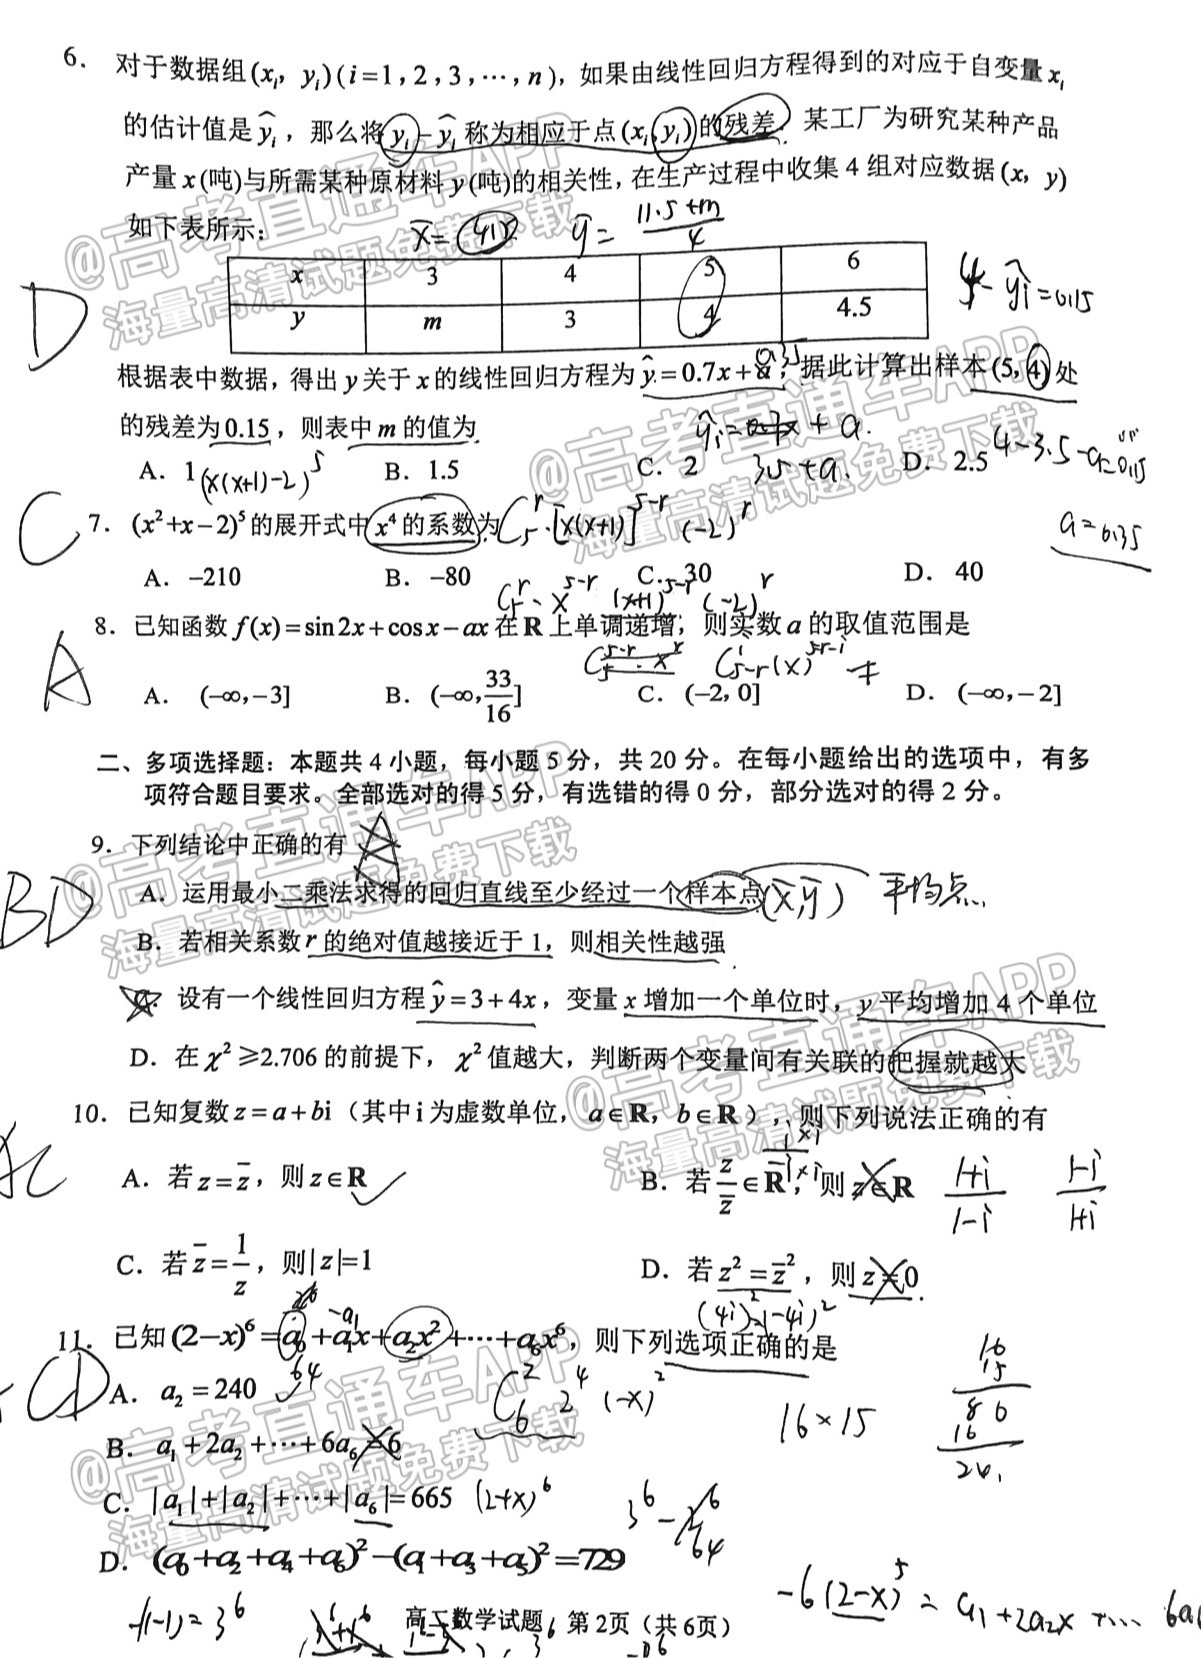 6. 对于数据组(xᵢ, yᵢ)(i=1,2,3,⋯,n),如果由线性回归方程得到的对应于自变量xᵢ
的估计值是ŷᵢ,那么将yᵢ-ŷᵢ称为相应于点(xᵢ, yᵢ)的残差. 某工厂为研究某种产品
产量x(吨)与所需某种原材料y(吨)的相关性,在生产过程中收集4组对应数据(x, y)
如下表所示: x̄= y̅= (11.5+m)/4
x 3 4 5 6
y m 3 4 4.5
D
4-ŷᵢ=0.15
根据表中数据,得出y关于x的线性回归方程为ŷ=0.7x+ 据此计算出样本(5,4)处
的残差为0.15,则表中m的值为
ŷᵢ=0.7x+a.
A. 1 B. 1.5 C. 2 D. 2.5
(x(x+1)-2)⁵
3.5+a.
4-3.5-a=0.15
a=0.35
C
7. (x²+x-2)⁵的展开式中x⁴的系数为
C₅ʳ·[x(x+1)]⁵⁻ʳ(-2)ʳ
A. -210 B. -80 C. 30 D. 40
C₅ʳ·x⁵⁻ʳ(x+1)⁵⁻ʳ(-2)ʳ
8. 已知函数f(x)=sin2x+cosx-ax在R上单调递增,则实数a的取值范围是
A
A. (-∞,-3] B. (-∞,33/16] C. (-2,0] D. (-∞,-2]
二、多项选择题:本题共4小题,每小题5分,共20分。在每小题给出的选项中,有多
项符合题目要求。全部选对的得5分,有选错的得0分,部分选对的得2分。
9. 下列结论中正确的有
BD
A. 运用最小二乘法求得的回归直线至少经过一个样本点(x̄,y̅) 平均点.
B. 若相关系数r的绝对值越接近于1,则相关性越强
C. 设有一个线性回归方程ŷ=3+4x,变量x增加一个单位时,y平均增加4个单位
D. 在χ²≥2.706的前提下,χ²值越大,判断两个变量间有关联的把握就越大
10. 已知复数z=a+bi(其中i为虚数单位,a∈R,b∈R),则下列说法正确的有
AC
A. 若z=z̄,则z∈R ✓ B. 若z/z̄∈R,则z∈R
(1+i)/(1-i) (1-i)/(1+i)
C. 若z̄=1/z,则|z|=1 D. 若z²=z̄²,则z=0
(4i)²=(-4i)²
11. 已知(2-x)⁶=a₀+a₁x+a₂x²+⋯+a₆x⁶,则下列选项正确的是
-a₁
CD
A. a₂=240 ✓ 64
C₆² 2⁴ (-x)²
16×15
16
15
80
16
B. a₁+2a₂+⋯+6a₆=6
C. |a₁|+|a₂|+⋯+|a₆|=665 (2+x)⁶
3⁶-2⁶
64
D. (a₀+a₂+a₄+a₆)²-(a₁+a₃+a₅)²=729
f(-1)=3⁶
-6(2-x)⁵=a₁+2a₂x+⋯ 6a₆
高二数学试题 第2页(共6页)
@高考直通车APP
海量高清试题免费下载
@高考直通车APP
海量高清试题免费下载
@高考直通车APP
海量高清试题免费下载
@高考直通车APP
海量高清试题免费下载
@高考直通车APP
海量高清试题免费下载